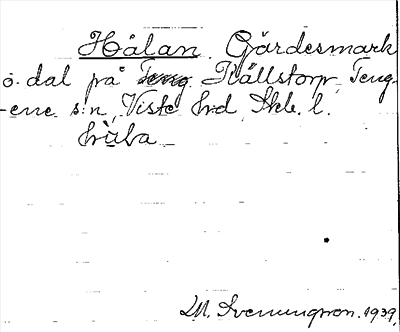 Hålan Gärdesmark
o. dal på Källstorp, Teng-
ene s:n, Viste hd, Skb. l.
hùla
M. Svenungson. 1939.